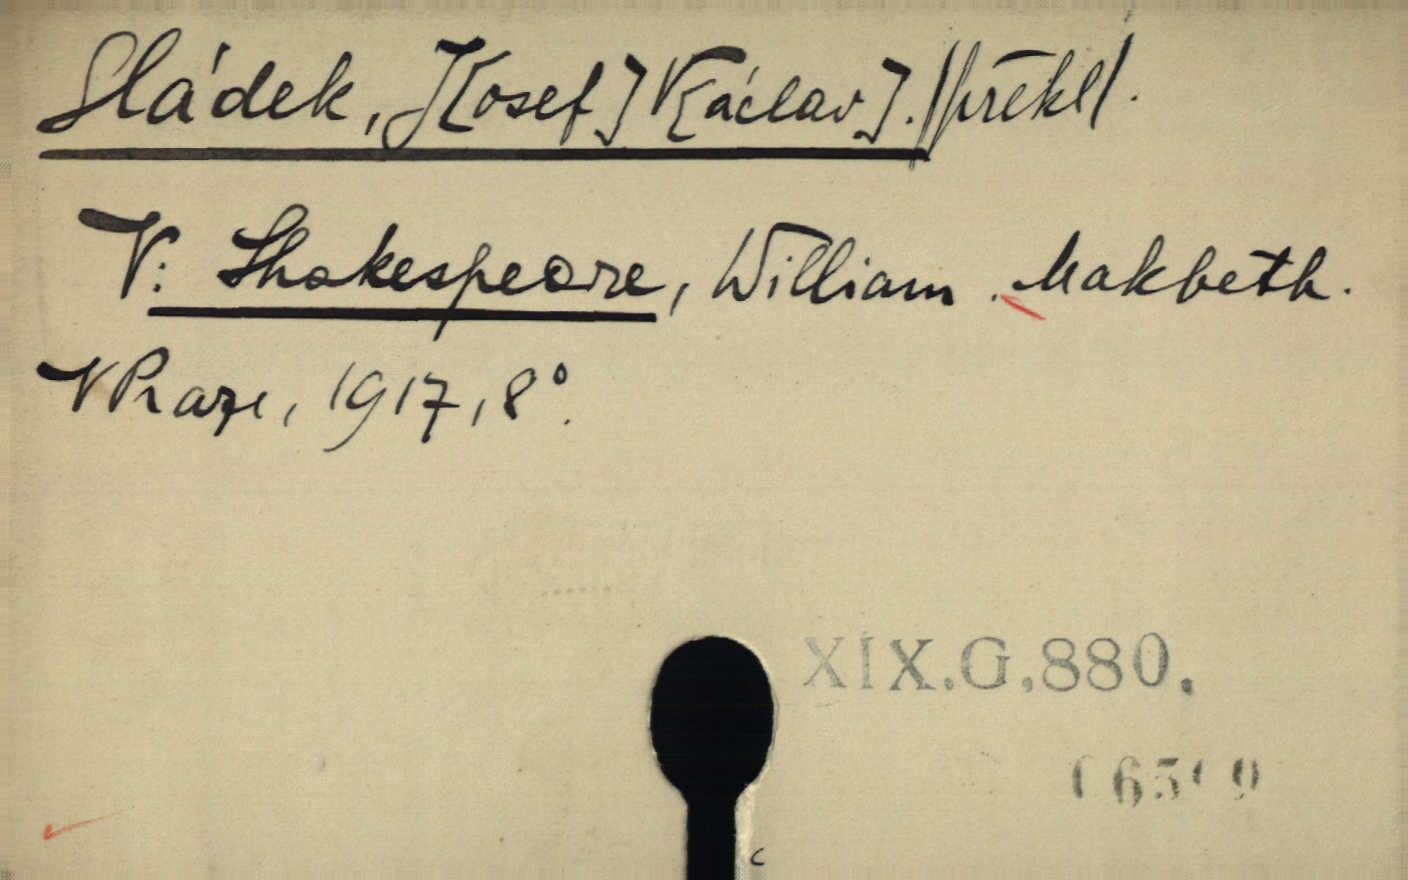 Sládek, J[osef] V[áclav]. /překl/.
V: Shakespeare, William. Makbeth.
V Praze, 1917, 8°.
XIX.G.880.